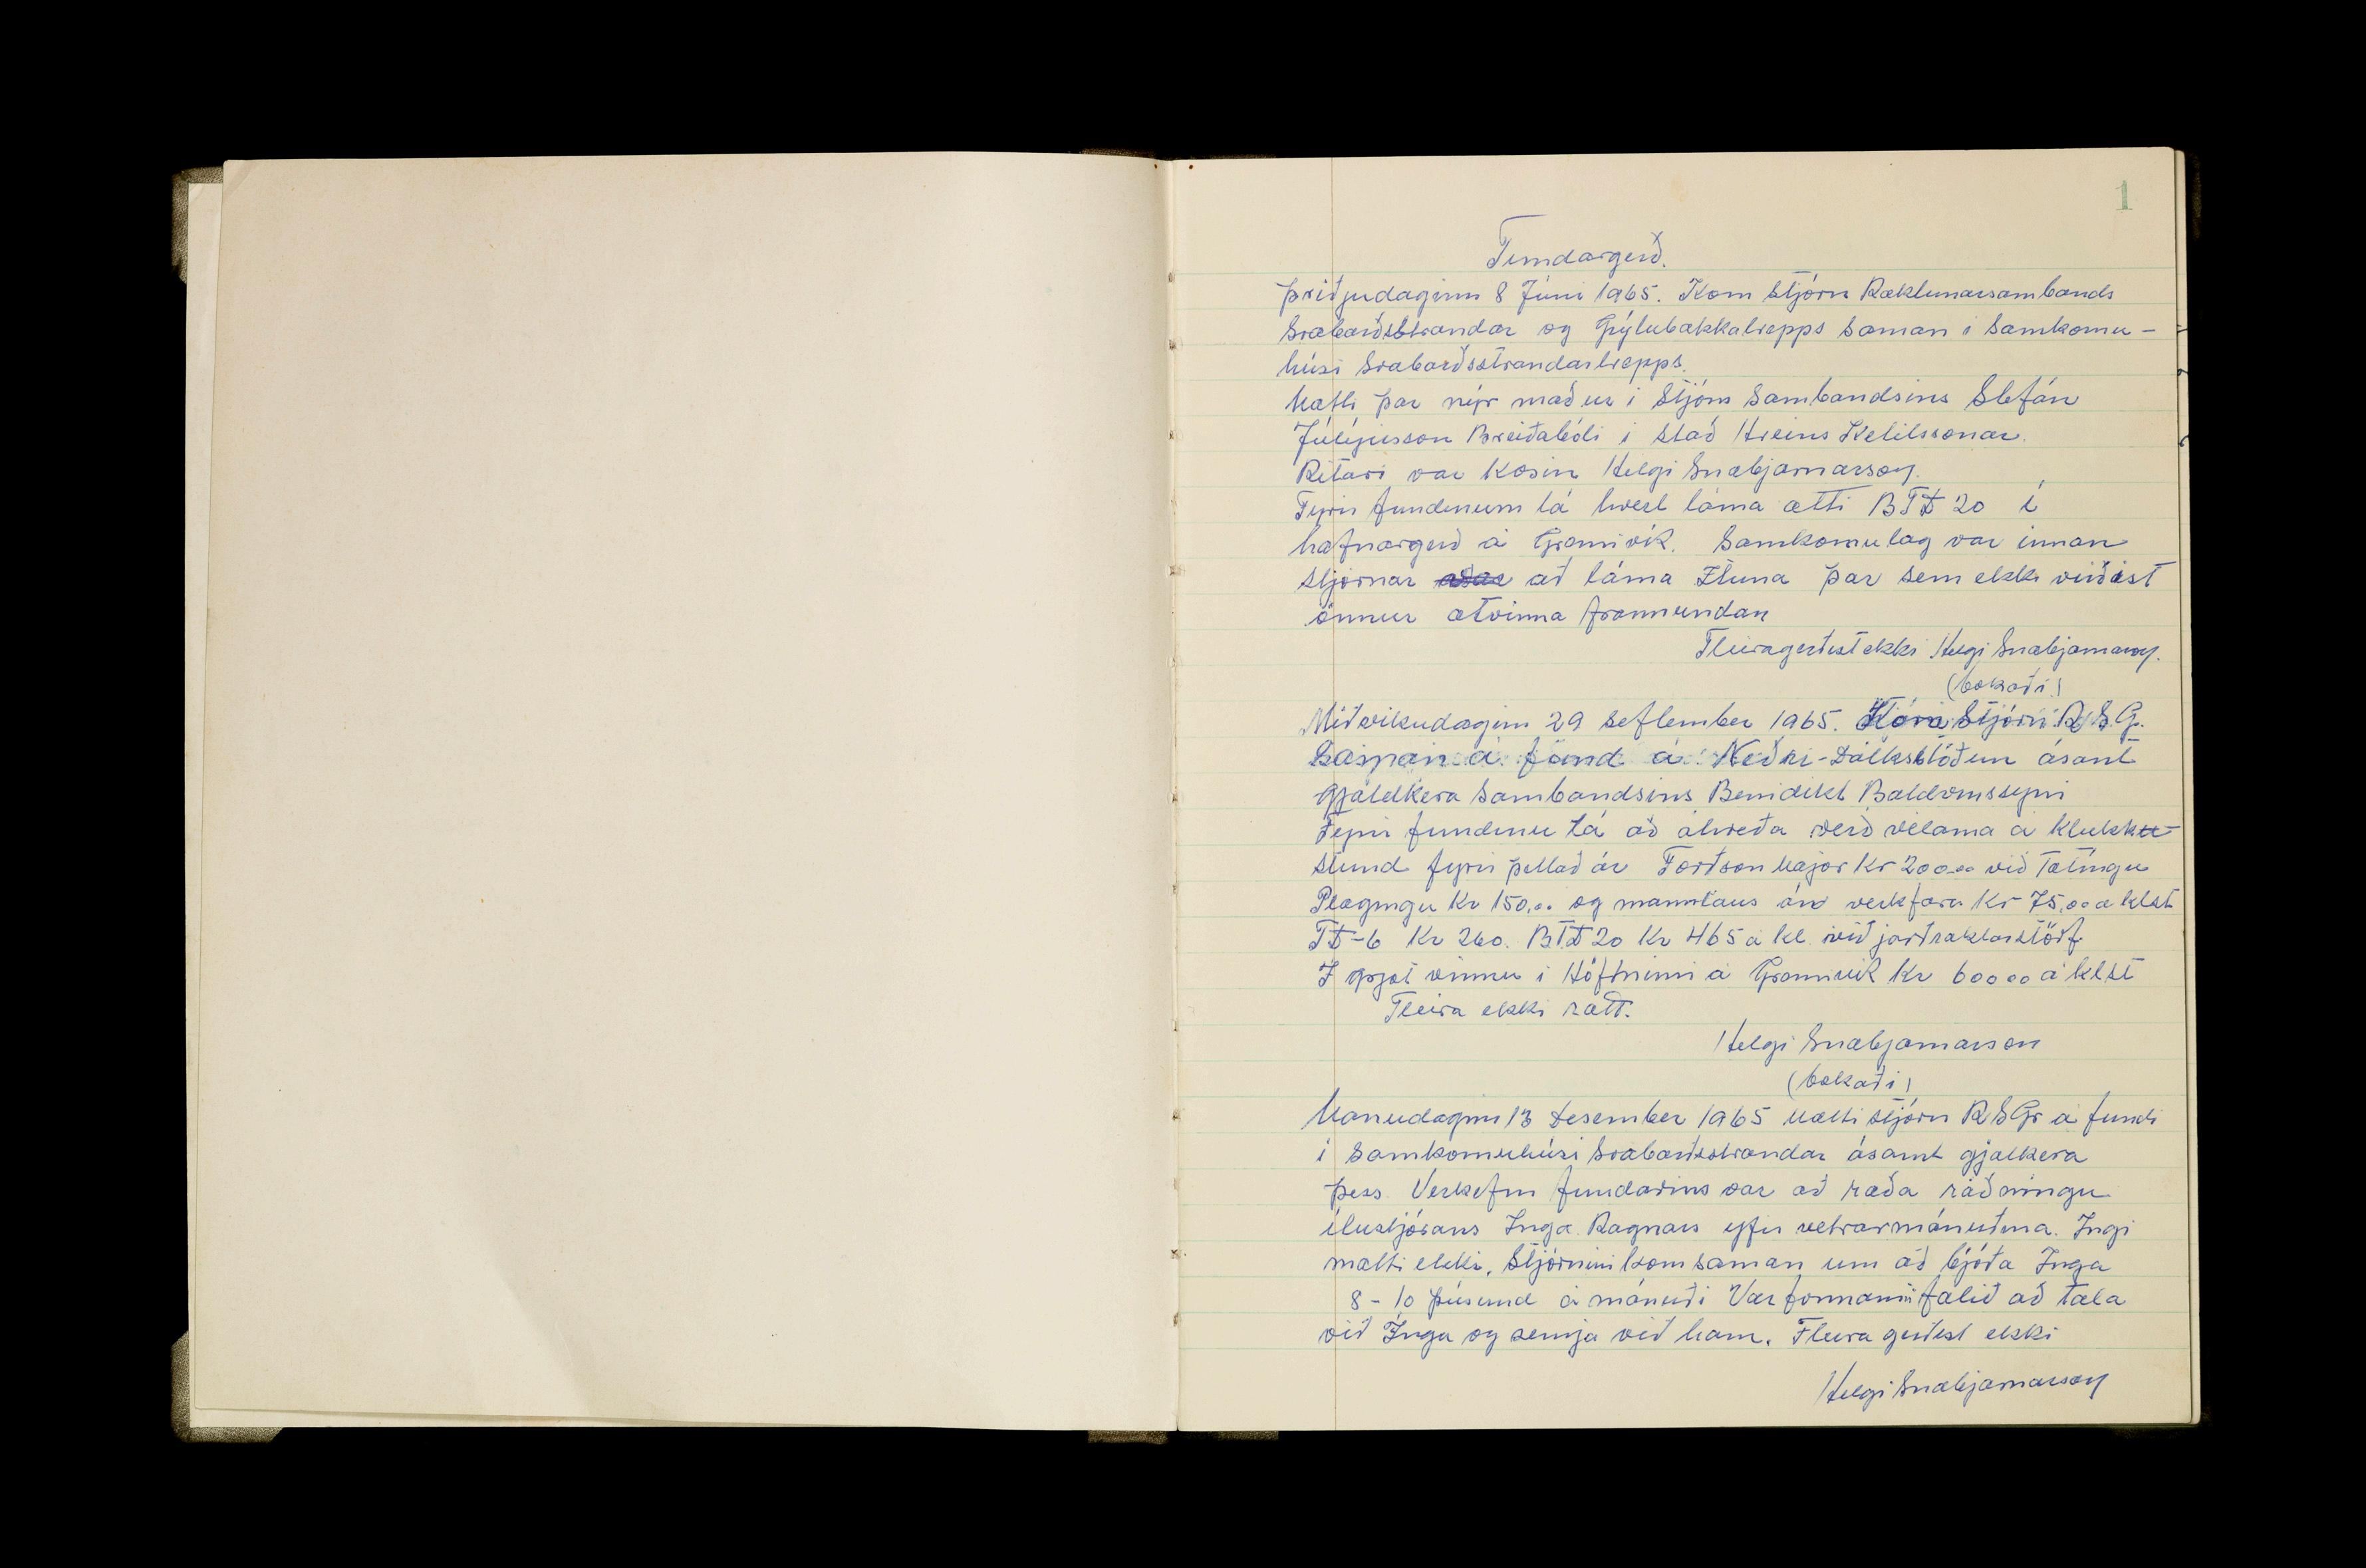 1
Fundargerð.
þriðjudaginn 8 Júní 1965. Kom stjórn Ræktunarsambands
Svalbarðsstrandar og Grýtubakkahrepps saman í Samkomu-
húsi Svalbarðsstrandarhrepps.
Mætti þar nýr maður í stjórn Sambandsins Stefán
Júlýusson Breiðabóli í stað Hreins Ketilssonar.
Ritari var kosin Helgi Snæbjarnarson.
Fyrir fundinum lá hvert lána ætti BTD 20 í
hafnargerð á Grenivík. Samkomulag var innan
stjórnar að lána Ítuna þar sem ekki virðist
önnur atvinna framundan
Fleira gerðist ekki Helgi Snæbjarnarson.
(bókaði)
Miðvikudaginn 29 september 1965. Kom Stjórn R.S.G.
Saman á fund á Neðri-Dálksstöðum ásamt
gjaldkera Sambandsins Benidikt Baldvinssyni
Fyrir fundinu lá að ákveða verð vélanna á klukku-
stund fyrir þettað ár Fordson Major Kr 200.00 við Tætingu
Plægingu Kr 150,00 og mannlaus án verkfæra Kr 75,00 á klst
TD-6 Kr 260. BTD 20 Kr 465 á kl við jarðræktarstörf
Í grjót vinnu í Höfninni á Grenivík Kr 600 00 á klst
Fleira ekki rætt.
Helgi Snæbjarnarson
(bókaði)
Mánudaginn 13 Desember 1965 Mætti stjórn R S Gr á fundi
í Samkomuhúsi Svalbarðsstrandar ásamt gjaldkera
þess. Verkefni fundarins var að ræða ráðningu
ítustjórans Inga Ragnars yfir vetrarmánuðina. Ingi
mætti ekki. Stjórninni kom saman um að bjóða Inga
8-10 þúsund á mánuði Var formanni falið að tala
við Inga og semja við hann. Fleira gerðist ekki
Helgi Snæbjarnarson